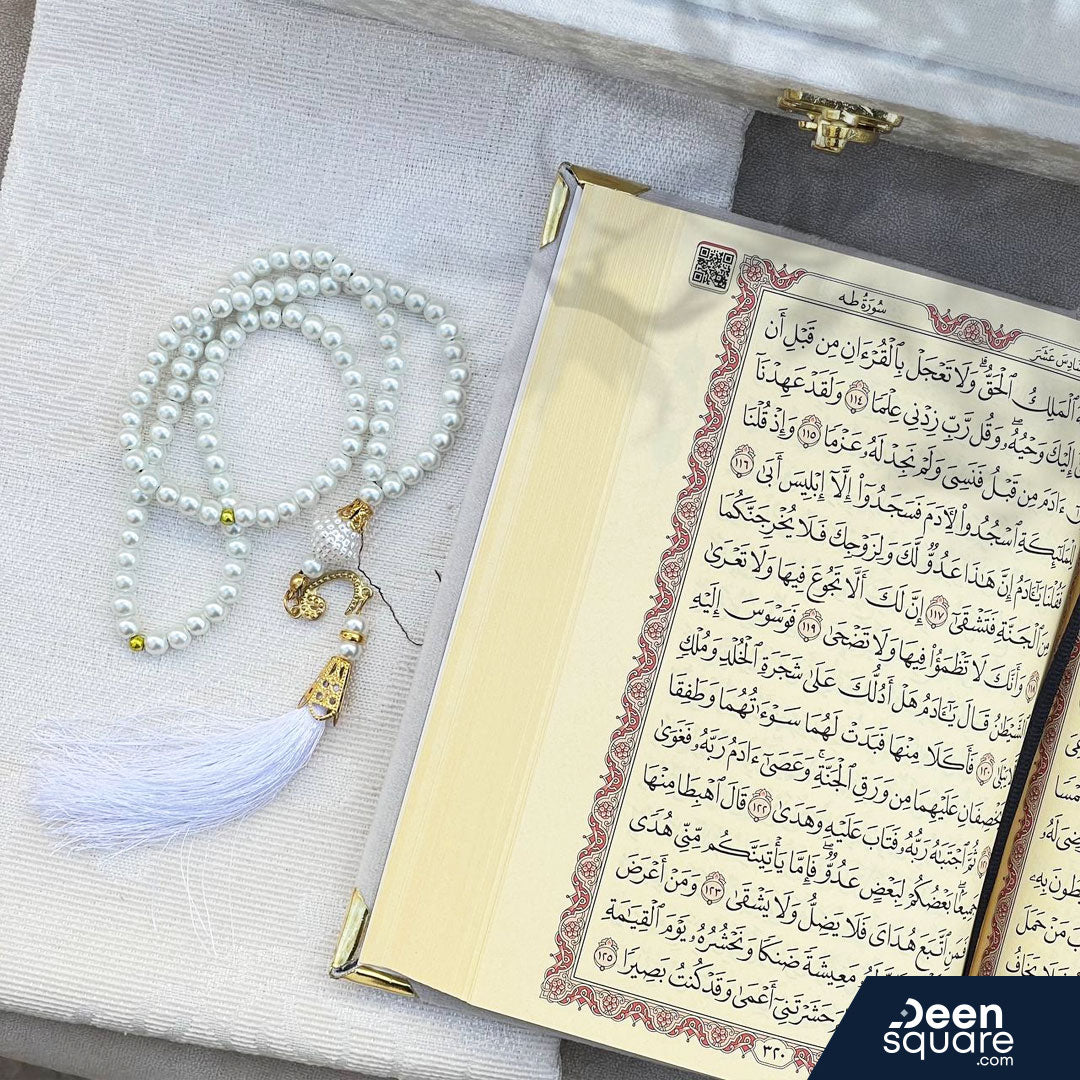 سُورَةُ طه
ٱلْمَلِكُ ٱلْحَقُّ ۗ وَلَا تَعْجَلْ بِٱلْقُرْءَانِ مِن قَبْلِ أَن
إِلَيْكَ وَحْيُهُۥ ۖ وَقُل رَّبِّ زِدْنِى عِلْمًا ١١٤ وَلَقَدْ عَهِدْنَآ
ءَادَمَ مِن قَبْلُ فَنَسِىَ وَلَمْ نَجِدْ لَهُۥ عَزْمًا ١١٥ وَإِذْ قُلْنَا
لِلْمَلَـٰٓئِكَةِ ٱسْجُدُوا۟ لِـَٔادَمَ فَسَجَدُوٓا۟ إِلَّآ إِبْلِيسَ أَبَىٰ ١١٦
فَقُلْنَا يَـٰٓـَٔادَمُ إِنَّ هَـٰذَا عَدُوٌّ لَّكَ وَلِزَوْجِكَ فَلَا يُخْرِجَنَّكُمَا
مِنَ ٱلْجَنَّةِ فَتَشْقَىٰٓ ١١٧ إِنَّ لَكَ أَلَّا تَجُوعَ فِيهَا وَلَا تَعْرَىٰ
١١٨ وَأَنَّكَ لَا تَظْمَؤُا۟ فِيهَا وَلَا تَضْحَىٰ ١١٩ فَوَسْوَسَ إِلَيْهِ
ٱلشَّيْطَـٰنُ قَالَ يَـٰٓـَٔادَمُ هَلْ أَدُلُّكَ عَلَىٰ شَجَرَةِ ٱلْخُلْدِ وَمُلْكٍ
يَبْلَىٰ ١٢٠ فَأَكَلَا مِنْهَا فَبَدَتْ لَهُمَا سَوْءَٰتُهُمَا وَطَفِقَا
يَخْصِفَانِ عَلَيْهِمَا مِن وَرَقِ ٱلْجَنَّةِ ۚ وَعَصَىٰٓ ءَادَمُ رَبَّهُۥ فَغَوَىٰ
ثُمَّ ٱجْتَبَـٰهُ رَبُّهُۥ فَتَابَ عَلَيْهِ وَهَدَىٰ ١٢٢ قَالَ ٱهْبِطَا مِنْهَا
جَمِيعًۢا ۖ بَعْضُكُمْ لِبَعْضٍ عَدُوٌّ ۖ فَإِمَّا يَأْتِيَنَّكُم مِّنِّى هُدًى
فَمَنِ ٱتَّبَعَ هُدَاىَ فَلَا يَضِلُّ وَلَا يَشْقَىٰ ١٢٣ وَمَنْ أَعْرَضَ
مَعِيشَةً ضَنكًا وَنَحْشُرُهُۥ يَوْمَ ٱلْقِيَـٰمَةِ
حَشَرْتَنِىٓ أَعْمَىٰ وَقَدْ كُنتُ بَصِيرًا ١٢٥
٣٢٠
Deen
square
.com